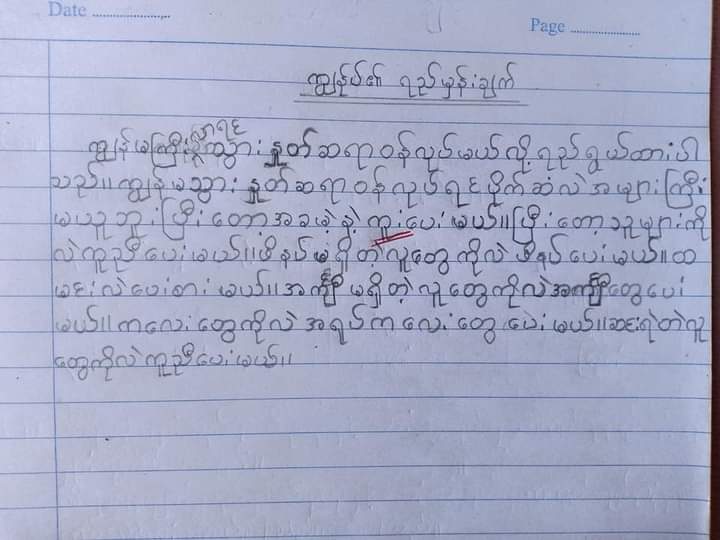 Date
Page
ကျွန်ုပ်၏ ရည်မှန်းချက်
ကျွန်မကြီးလာရင် သွားနှုတ်ဆရာဝန်လုပ်မယ်လို့ ရည်ရွယ်ထားပါ
သည်။ ကျွန်မသွား နှုတ်ဆရာဝန်လုပ်ရင် ပိုက်ဆံလဲ အများကြီး
မယူဘူး ပြီးတော့အခမဲ့နဲ့ ကူးပေးမယ်။ ပြီးတော့ သူများကို
လဲကူညီပေးမယ်။ ဖိနပ်မရှိတဲ့လူတွေကိုလဲ ဖိနပ်ပေးမယ်။ ထ
မင်းလဲပေးစားမယ်။ အင်္ကျီ မရှိတဲ့ လူတွေကိုလဲအင်္ကျီတွေပေး
မယ်။ ကလေးတွေကိုလဲ အရုပ်ကလေးတွေ ပေးမယ်။ ဆင်းရဲတဲ့လူ
တွေကိုလဲကူညီပေးမယ်။